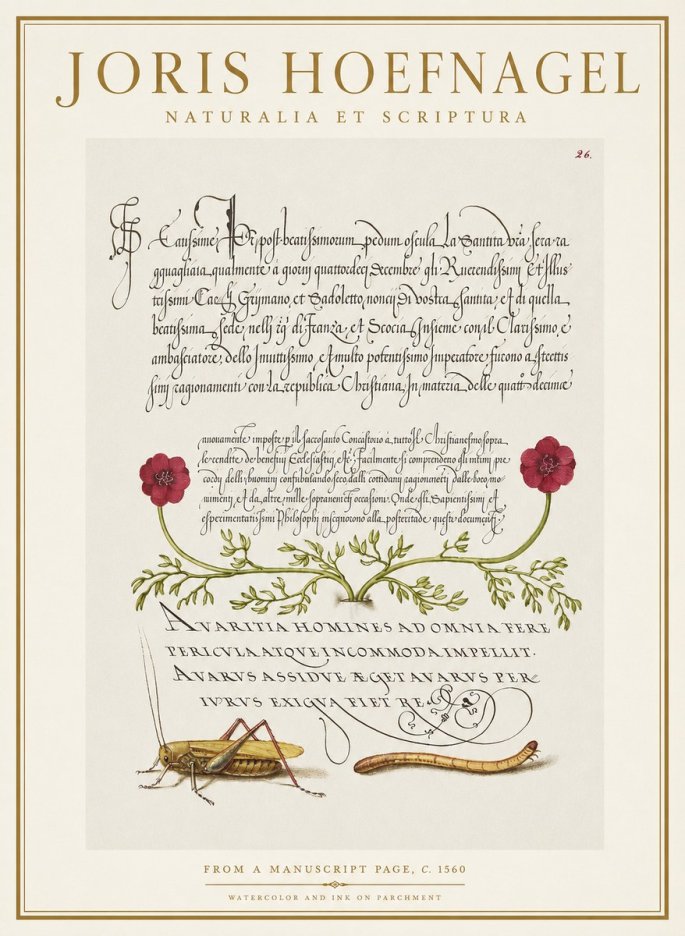 JORIS HOEFNAGEL
NATURALIA ET SCRIPTURA
26.
post beatissimorum pedum oscula La Santita vra sera ra
gguagliata qualmente a giorni quattordeci Decembre gli Reverendissimi Et Illus
trissimi Grymano, et Sadoletto, noncij Di vostra Santita, et di quella
beatissima sede, nelli di Franza, et Scocia, Insieme con il Clarissimo,
ambasciatore, dello Invittissimo, et multo potentissimo Imperatore furono a strettis
simi ragionamenti con la republica Christiana, In materia delle decime
nuovamente imposte il sacrosanto a tutto Il Christianesmo sopra
le rendite de beneficij Ecclesiastici, Facilmente si comprendono gli intimi
delli huomini confabulando seco, dalli cottidiani ragionamenti dalle loro mo
vimenti, Et da altre mille occasioni, Onde gli Sapientissimi et
esperimentatissimi Philosophi insegnorono alla posteritade questi documenti,
AVARITIA HOMINES AD OMNIA FERE
PERICVLA ATQVE INCOMMODA IMPELLIT.
AVARVS ASSIDVE ÆGET AVARVS PER
IVRVS EXIGVA FIET RE
FROM A MANUSCRIPT PAGE, C. 1560
WATERCOLOR AND INK ON PARCHMENT